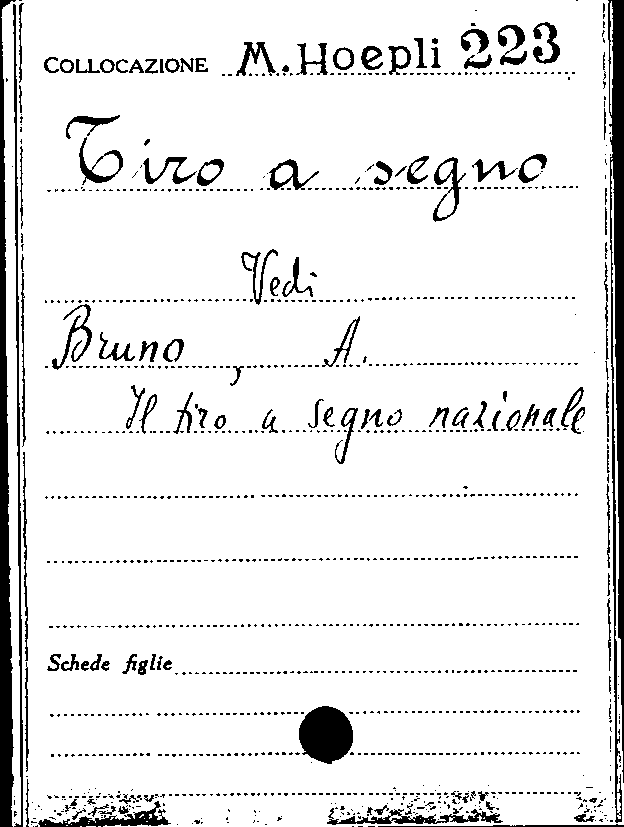 COLLOCAZIONE M. Hoepli 223
Tiro a segno
Vedi
Bruno, A.
Il tiro a segno nazionale
Schede figlie